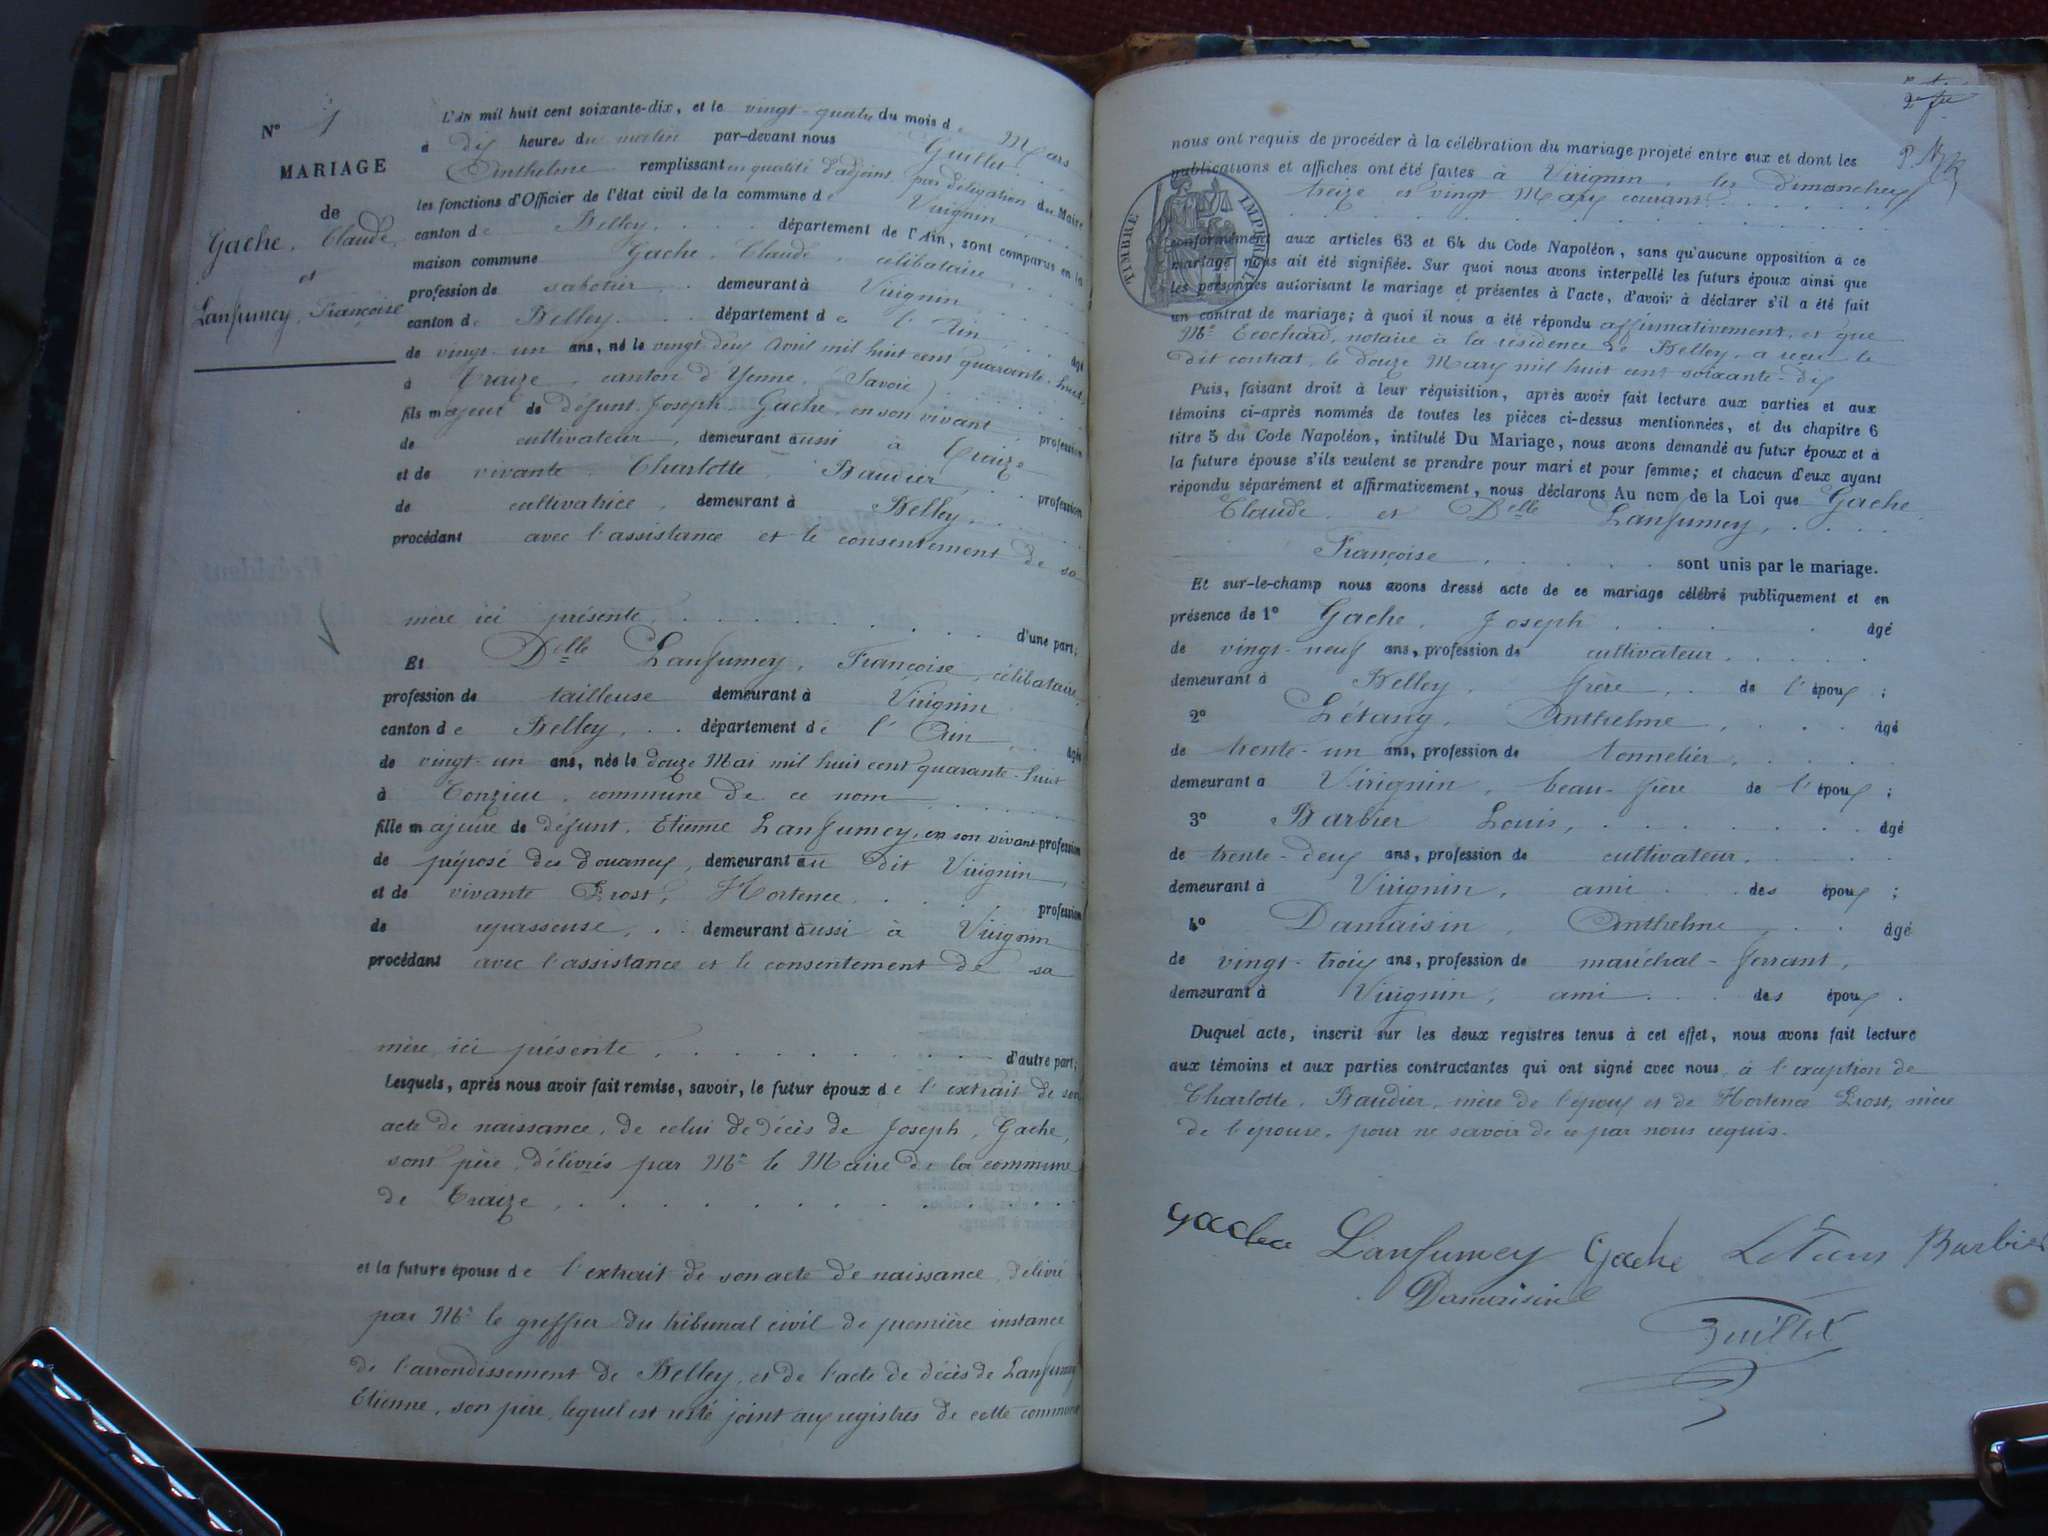 N° 1
MARIAGE
de
Gache, Claude,
et
Lanfumey, Françoise
L'AN mil huit cent soixante-dix, et le vingt-quatre du mois de Mars
à dix heures du matin par-devant nous Guillet
Anthelme remplissant en qualité d'adjoint, par délégation du Maire
les fonctions d'Officier de l'état civil de la commune de Virignin
canton de Belley, département de l'Ain, sont comparus en la
maison commune Gache, Claude, célibataire
profession de sabotier demeurant à Virignin
canton de Belley département de l'Ain âgé
de vingt-un ans, né le vingt-deux Avril mil huit cent quarante-huit,
à Traize, canton d'Yenne, (Savoie)
fils majeur de défunt Joseph Gache, en son vivant, profession
de cultivateur, demeurant aussi à Traize
et de vivante Charlotte Baudier, profession
de cultivatrice, demeurant à Belley,
procédant avec l'assistance et le consentement de sa
mère ici présente d'une part;
Et Delle Lanfumey, Françoise, célibataire,
profession de tailleuse demeurant à Virignin
canton de Belley, département de l'Ain, âgée
de vingt-un ans, née le douze Mai mil huit cent quarante-huit
à Conzieu, commune de ce nom
fille majeure de défunt Etienne Lanfumey, en son vivant profession
de préposé des douanes, demeurant au dit Virignin,
et de vivante Prost, Hortence, profession
de repasseuse, demeurant aussi à Virignin
procédant avec l'assistance et le consentement de sa
mère, ici présente, d'autre part;
Lesquels, après nous avoir fait remise, savoir, le futur époux de l'extrait de son
acte de naissance, de celui de décès de Joseph, Gache,
sont père, délivrés par Mr le Maire de la commune
de Traize
et la future épouse de l'extrait de son acte de naissance, délivré
par Mr le greffier du tribunal civil de première instance
de l'arrondissement de Belley, et de l'acte de décès de Lanfumey
Etienne, son père, lequel est resté joint aux registres de cette commune
nous ont requis de procéder à la célébration du mariage projeté entre eux et dont les
publications et affiches ont été faites à Virignin, les dimanches
treize et vingt Mars courant
TIMBRE IMPÉRIAL
conformément aux articles 63 et 64 du Code Napoléon, sans qu'aucune opposition à ce
mariage nous ait été signifiée. Sur quoi nous avons interpellé les futurs époux ainsi que
les personnes autorisant le mariage et présentes à l'acte, d'avoir à déclarer s'il a été fait
un contrat de mariage; à quoi il nous a été répondu affirmativement, et que
Me Ecochard, notaire à la résidence de Belley, a reçu le
dit contrat, le douze Mars mil huit cent soixante-dix
Puis, faisant droit à leur réquisition, après avoir fait lecture aux parties et aux
témoins ci-après nommés de toutes les pièces ci-dessus mentionnées, et du chapitre 6
titre 5 du Code Napoléon, intitulé Du Mariage, nous avons demandé au futur époux et à
la future épouse s'ils veulent se prendre pour mari et pour femme; et chacun d'eux ayant
répondu séparément et affirmativement, nous déclarons Au nom de la Loi que Gache,
Claude et Delle Lanfumey,
Françoise sont unis par le mariage.
Et sur-le-champ nous avons dressé acte de ce mariage célébré publiquement et en
présence de 1° Gache, Joseph âgé
de vingt-neuf ans, profession de cultivateur,
demeurant à Belley, frère, de l'époux;
2° Létang, Anthelme, âgé
de trente-un ans, profession de tonnelier,
demeurant à Virignin, beau-frère de l'époux;
3° Barbier Louis, âgé
de trente-deux ans, profession de cultivateur,
demeurant à Virignin, ami des époux;
4° Damaisin, Anthelme, âgé
de vingt-trois ans, profession de maréchal-ferrant,
demeurant à Virignin, ami des époux.
Duquel acte, inscrit sur les deux registres tenus à cet effet, nous avons fait lecture
aux témoins et aux parties contractantes qui ont signé avec nous, à l'exception de
Charlotte, Baudier, mère de l'époux et de Hortence Prost, mère
de l'épouse, pour ne savoir de ce par nous requis.
Gache Lanfumey Gache Letans Barbier
Damaisin
Guillet